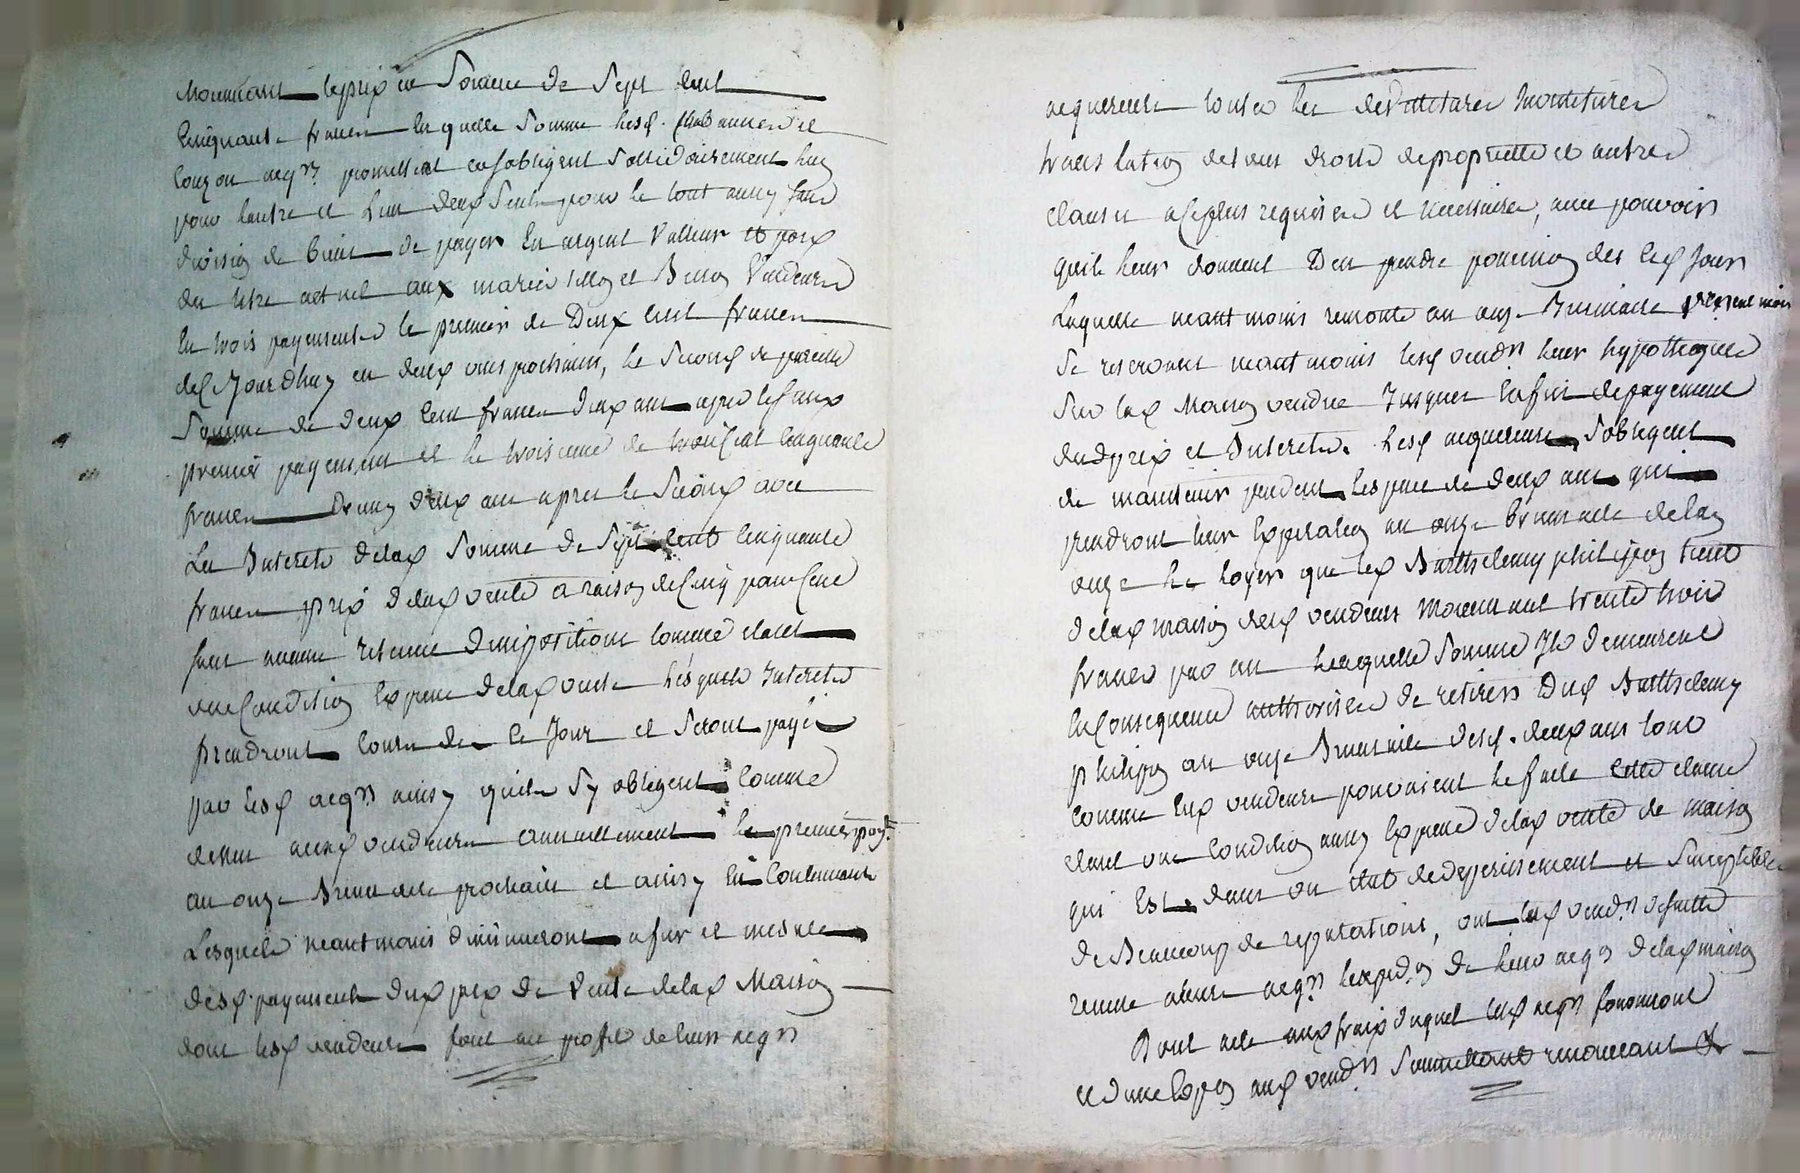 Moennant le prix et Somme de Sept Cent
Cinquante francs laquelle Somme lesd.
acqrs promettent et Sobligent Sollidairement lun
pour lautre et lun deux Seul pour le tout aussy sans
division de biens de payer en argent Valleur et poix
du titre actuel aux mariés et Vendeurs
En trois payements le premier de Deux Cent francs
dec Jourdhuy en deux ans prochains, le Second de pareille
Somme de deux Cent francs deux ans après led aux
premier payement et le troisieme de trois Cent Cinquante
francs Deux ans apres le Second avec
Les Interets de lad Somme de Sept Cent Cinquante
francs prix de lad vente a raison de Cinq pour Cent
sans aucune retenue Dimpositions comme etant
une Condition Expresse de lad vente lesquels Interets
prendront Cours des ce Jour et Seront payés
par lesd acqrs ainsy quils Sy obligent comme
dessus auxd vendeurs annuellement le premier payt
au onze Brumaire prochain et ainsy En Continuant
Lesquels neantmoins diminueront a fur et mesure
desd payements dud prix de Vente de lad Maison
dont lesd vendeurs font au profit de leurs acqrs
acquereurs toutes les devettitures Invettitures
translation de tous droits de proprietté et autres
Clauses a ce plus requises et Necessaires, avec pouvoir
quils leur donnent Den prendre pocession des ced Jour
Laquelle neantmoins remonte au onze Brumaire present mois
Se reservant neantmoins lesd vendrs leur hypotheque
Sur lad Maison vendue Jusques Enfin de payement
dud prix et Interets. lesd acquereurs Sobligent
de maintenir pendant lespace de deux ans qui
prendront leur Expiration au onze brumaire de lan
onze le loyer que led Barthelemy philipon tient
de lad maison desd vendeurs Moennant trente trois
francs par an laquelle Somme Ils demeurent
En Consequence authorisés de retirer Dud Barthelemy
philipon au onze Brumaire desd. deux ans tout
Comme lesd vendeurs pouvoient le faire cette clause
etant une Condition aussy Expresse de lad vente de maison
qui Est dans un etat de deperissement et Susceptible
de Beaucoup de reparations, ont lesd vendrs
remis a leurs acqrs de leur acqon de lad maison
Dont acte aux frais duquel lesd acqrs fourniront
et dune Expon auxd vendrs Soumettant renoncant &